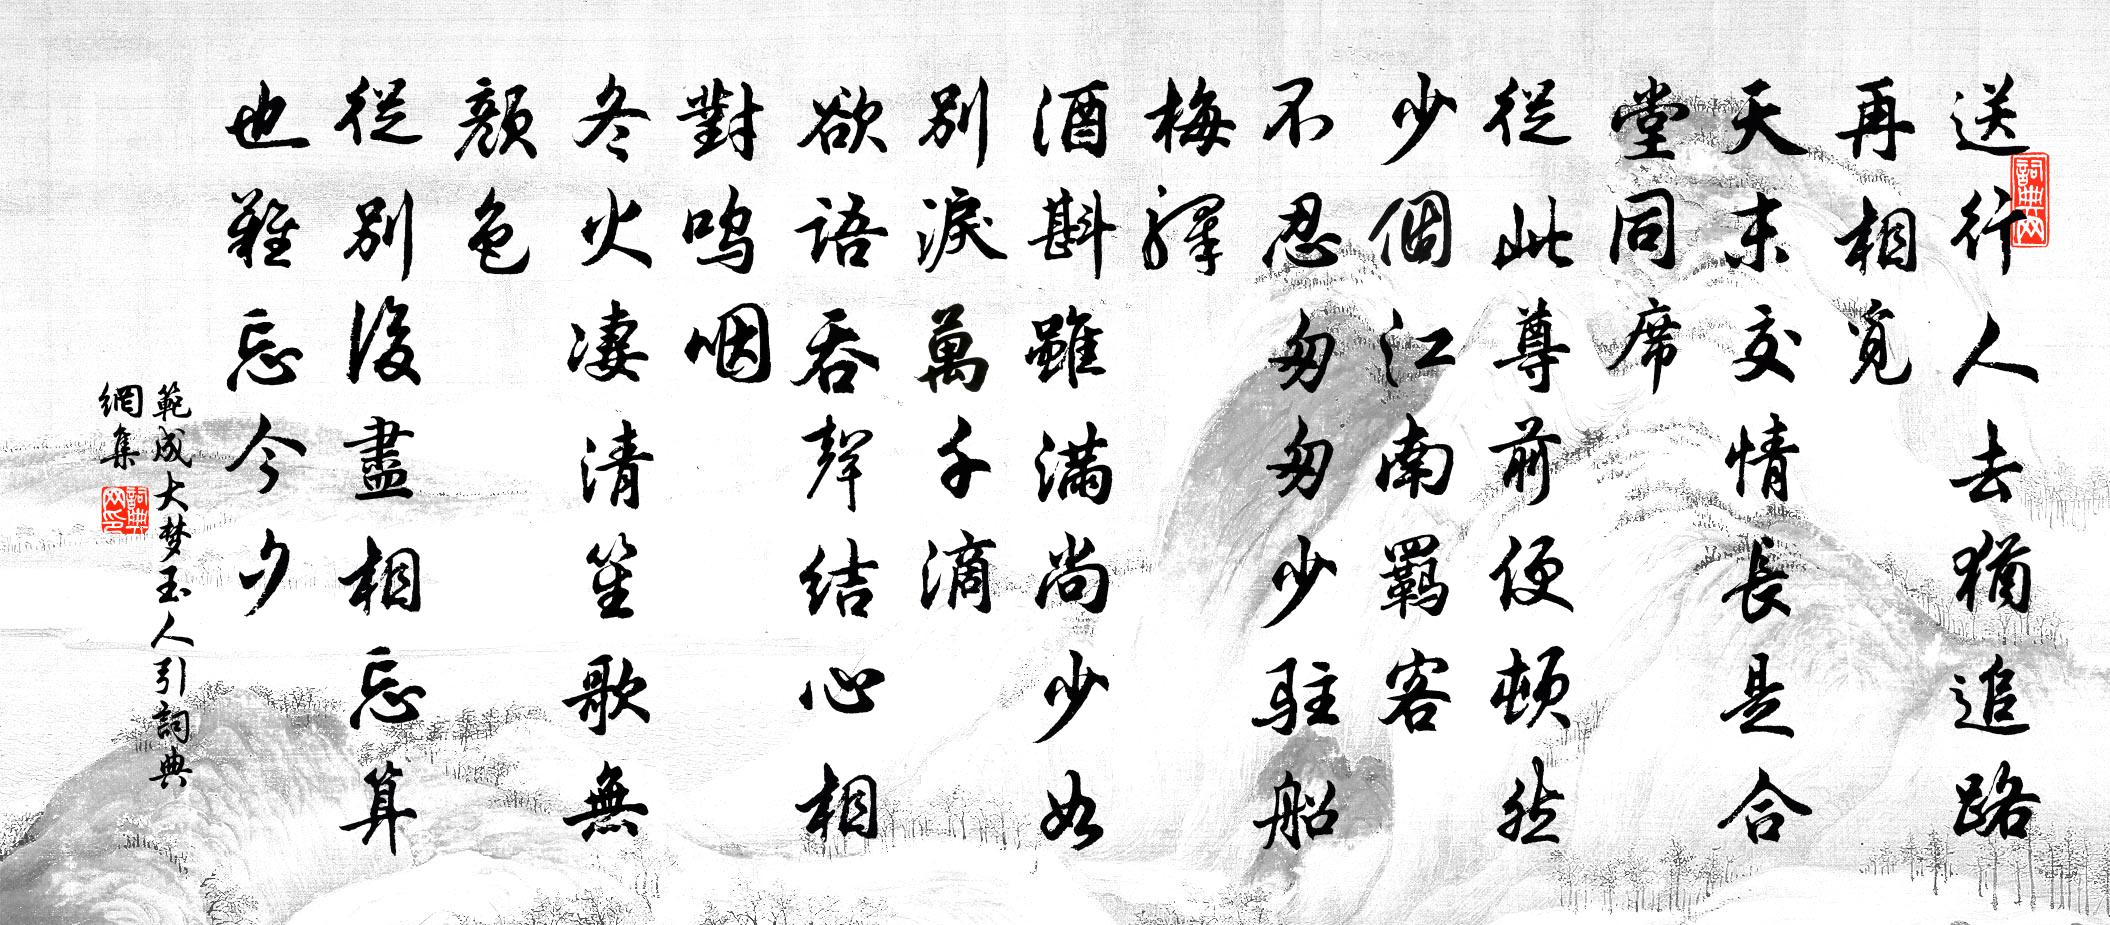 送行人去猶追路
再相覓
天末交情長是合
堂同席
從此尊前便頓然
少個江南羈客
不忍匆匆少駐船
梅驛
酒斟雖滿尚少如
別淚萬千滴
欲語吞聲結心相
對嗚咽
冬火凄清笙歌無
顏色
從別後盡相忘算
也難忘今夕
範成大梦玉人引詞典
網集
詞典网
詞典
网印